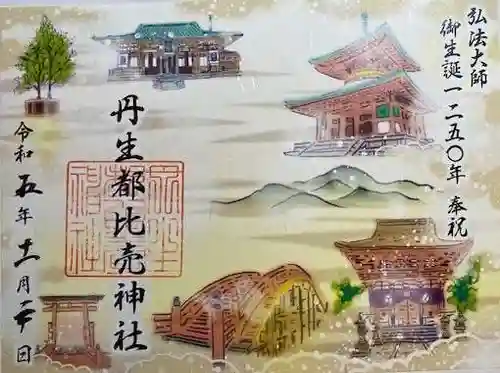 弘法大師
御生誕一二五〇年 奉祝
丹生都比売神社
令和五年十一月二十日